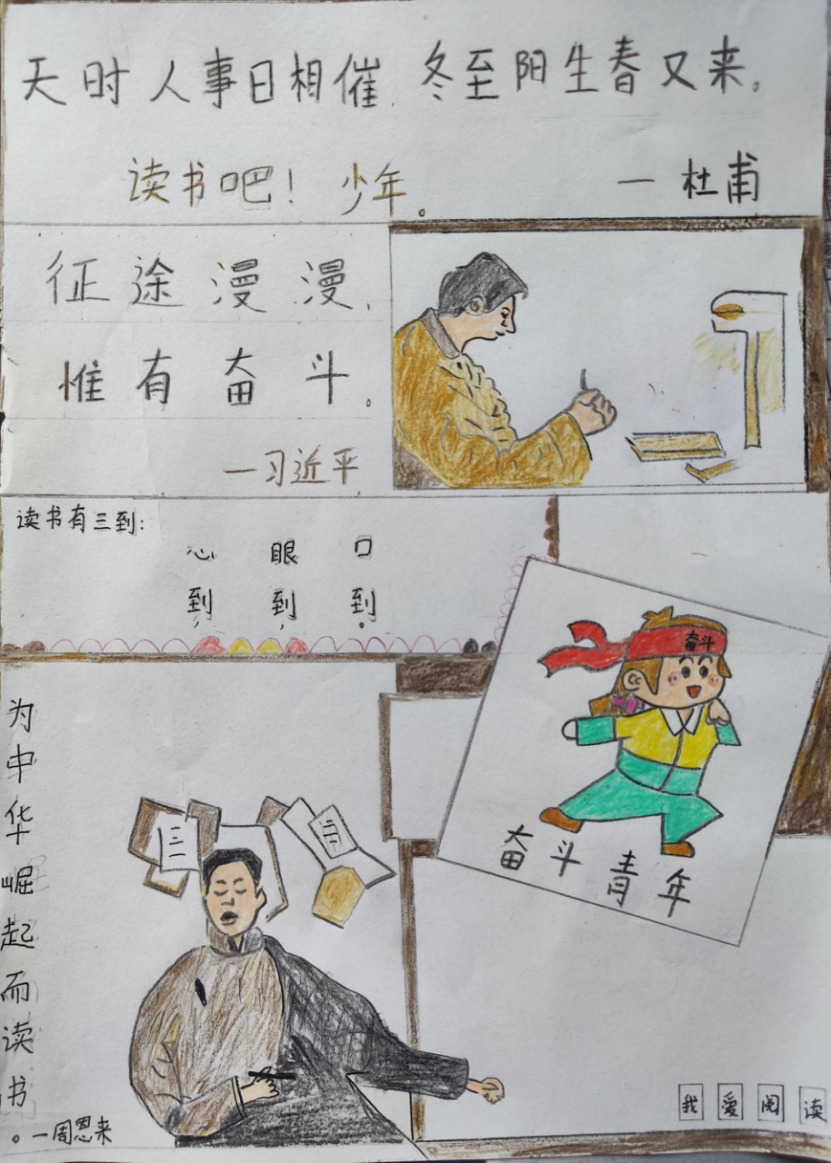 天时人事日相催,冬至阳生春又来。
读书吧！少年。
—杜甫
征途漫漫,
惟有奋斗。
—习近平
读书有三到:
心到,眼到,口到。
奋斗
奋斗青年
为中华崛起而读书。—周恩来
我爱阅读